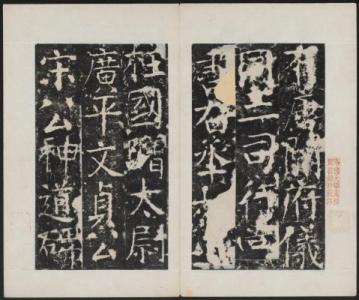 有唐開府儀
同三司行尚
書右丞
柱國贈太尉
廣平文貞公
宋公神道碑